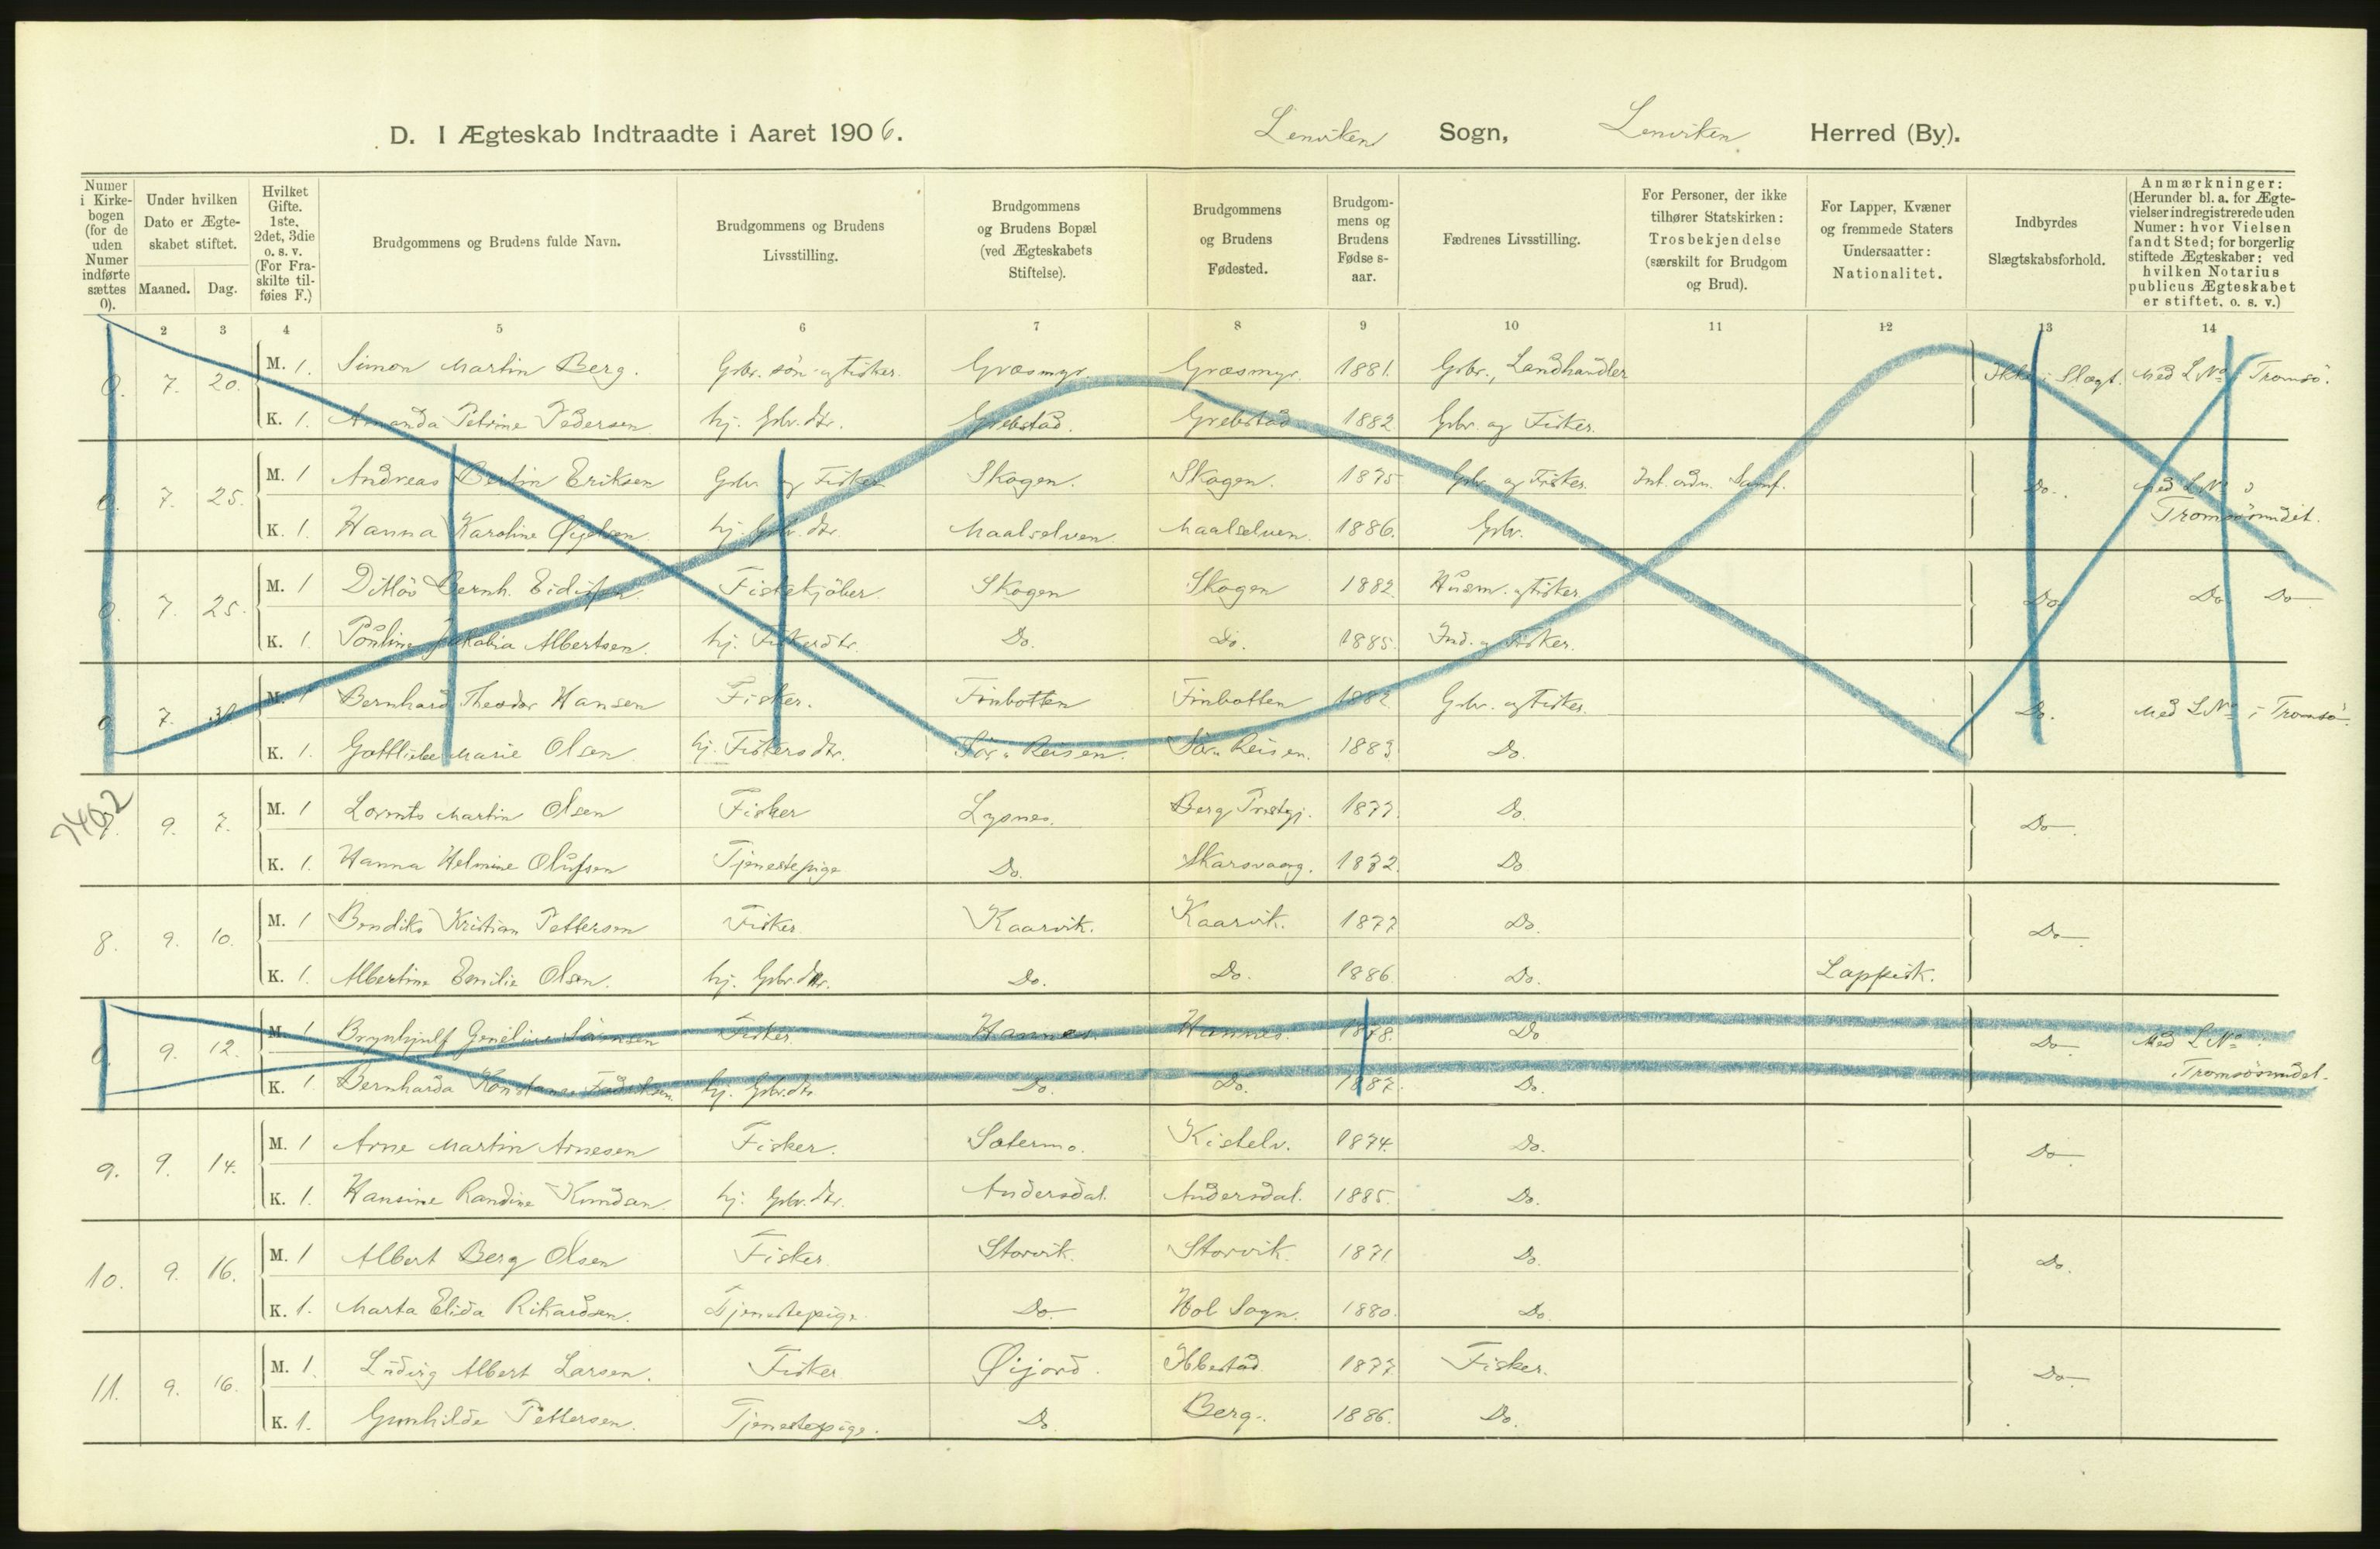 D. I Ægteskab Indtraadte i Aaret 1906. Lenviken Sogn, Lenviken Herred (By).
Numer i Kirkebogen (for de uden Numer indførte sættes 0). Under hvilken Dato er Ægteskabet stiftet. Maaned. Dag. Hvilket Gifte. 1ste, 2det, 3die o. s. v. (For Fraskilte tilføies F.) Brudgommens og Brudens fulde Navn. Brudgommens og Brudens Livsstilling. Brudgommens og Brudens Bopæl (ved Ægteskabets Stiftelse). Brudgommens og Brudens Fødested. Brudgommens og Brudens Fødselsaar. Fædrenes Livsstilling. For Personer, der ikke tilhører Statskirken: Trosbekjendelse (særskilt for Brudgom og Brud). For Lapper, Kvæner og fremmede Staters Undersaatter: Nationalitet. Indbyrdes Slægtskabsforhold. Anmærkninger: (Herunder bl. a. for Ægtevielser indregistrerede uden Numer: hvor Vielsen fandt Sted; for borgerlig stiftede Ægteskaber: ved hvilken Notarius publicus Ægteskabet er stiftet. o. s. v.)
2 3 4 5 6 7 8 9 10 11 12 13 14
0. 7. 20. M. 1. Simon Martin Berg. Gbr. søn og Fisker. Græsmyr. Græsmyr. 1881. Gbr., Landhandler Ikke i Slægt. Med L No i Tromsö.
K. 1. Amanda Petrine Pedersen. hj. Gbr. dtr. Grebstad. Grebstad 1882 Gbr. og Fisker.
0. 7. 25. M. 1 Andreas Bertin Eriksen Gbr. og Fisker Skogen. Skogen. 1875 Gbr. og Fisker. Do. Med L No i
K. 1 Hanna Karoline hj. Gbr. dtr. Maalselven. Maalselven. 1886. Gbr. Tromsösundet.
0. 7. 25. M. 1 Ditlös Bernh. Fiskekjöber. Skogen Skogen 1882. Husm. og Fisker Do Do Do
K. 1 Pauline Jakobia Albertsen. hj. Fiskerdtr. Do. Do. 1885. Ind. og Fisker.
0 7. M. 1 Bernhard Theodor Hansen Fisker. Finbotten Finbotten 1882. Gbr. og Fisker. Do. Med L No i Tromsö.
K. 1. Gottliebe Marie Olsen. hj. Fiskersdtr. Sör-Reisen. Sör-Reisen. 1883. Do.
7. 9. 7. M. 1 Lorents Martin Olsen Fisker Lysnes. Berg Prstgj. 1877. Do. Do.
K. 1. Hanna Helmine Olufsen Tjenestepige Do. Skarsvaag. 1872. Do
8. 9. 10. M. 1 Bendiks Kristian Pettersen Fisker. Kaarvik. Kaarvik. 1877 Do. Do.
K. 1. Albertine Emilie Olsen. hj. Gbr. dtr. Do. Do. 1886. Do. Lappisk.
0. 9. 12. M. 1 Brynhjulf Sörensen Fisker. Hannes. Hannes. 1878. Do Do. Med L No i
K. 1 Bernharda hj. Gbr. dtr. Do. Do. 1887. Do. Tromsösundet.
9. 9. 14. M. 1 Arne Martin Arnesen Fisker. Sætermo. Kistelv. 1874. Do. Do.
K. 1. Hansine Randine Knudsen. hj. Gbr. dtr. Andersdal. Andersdal. 1885. Do.
10. 9. 16. M. 1 Albert Berg Olsen Fisker. Storvik. Storvik. 1871 Do. Do.
K. 1. Marta Elida Rikardsen. Tjenestepige Do. Hol Sogn. 1880. Do.
11. 9. 16. M. 1. Ludvig Albert Larsen. Fisker Øijord. Ibbestad 1877 Fisker. Do.
K. 1. Gunhilde Pettersen. Tjenestepige. Do. Berg. 1886. Do.